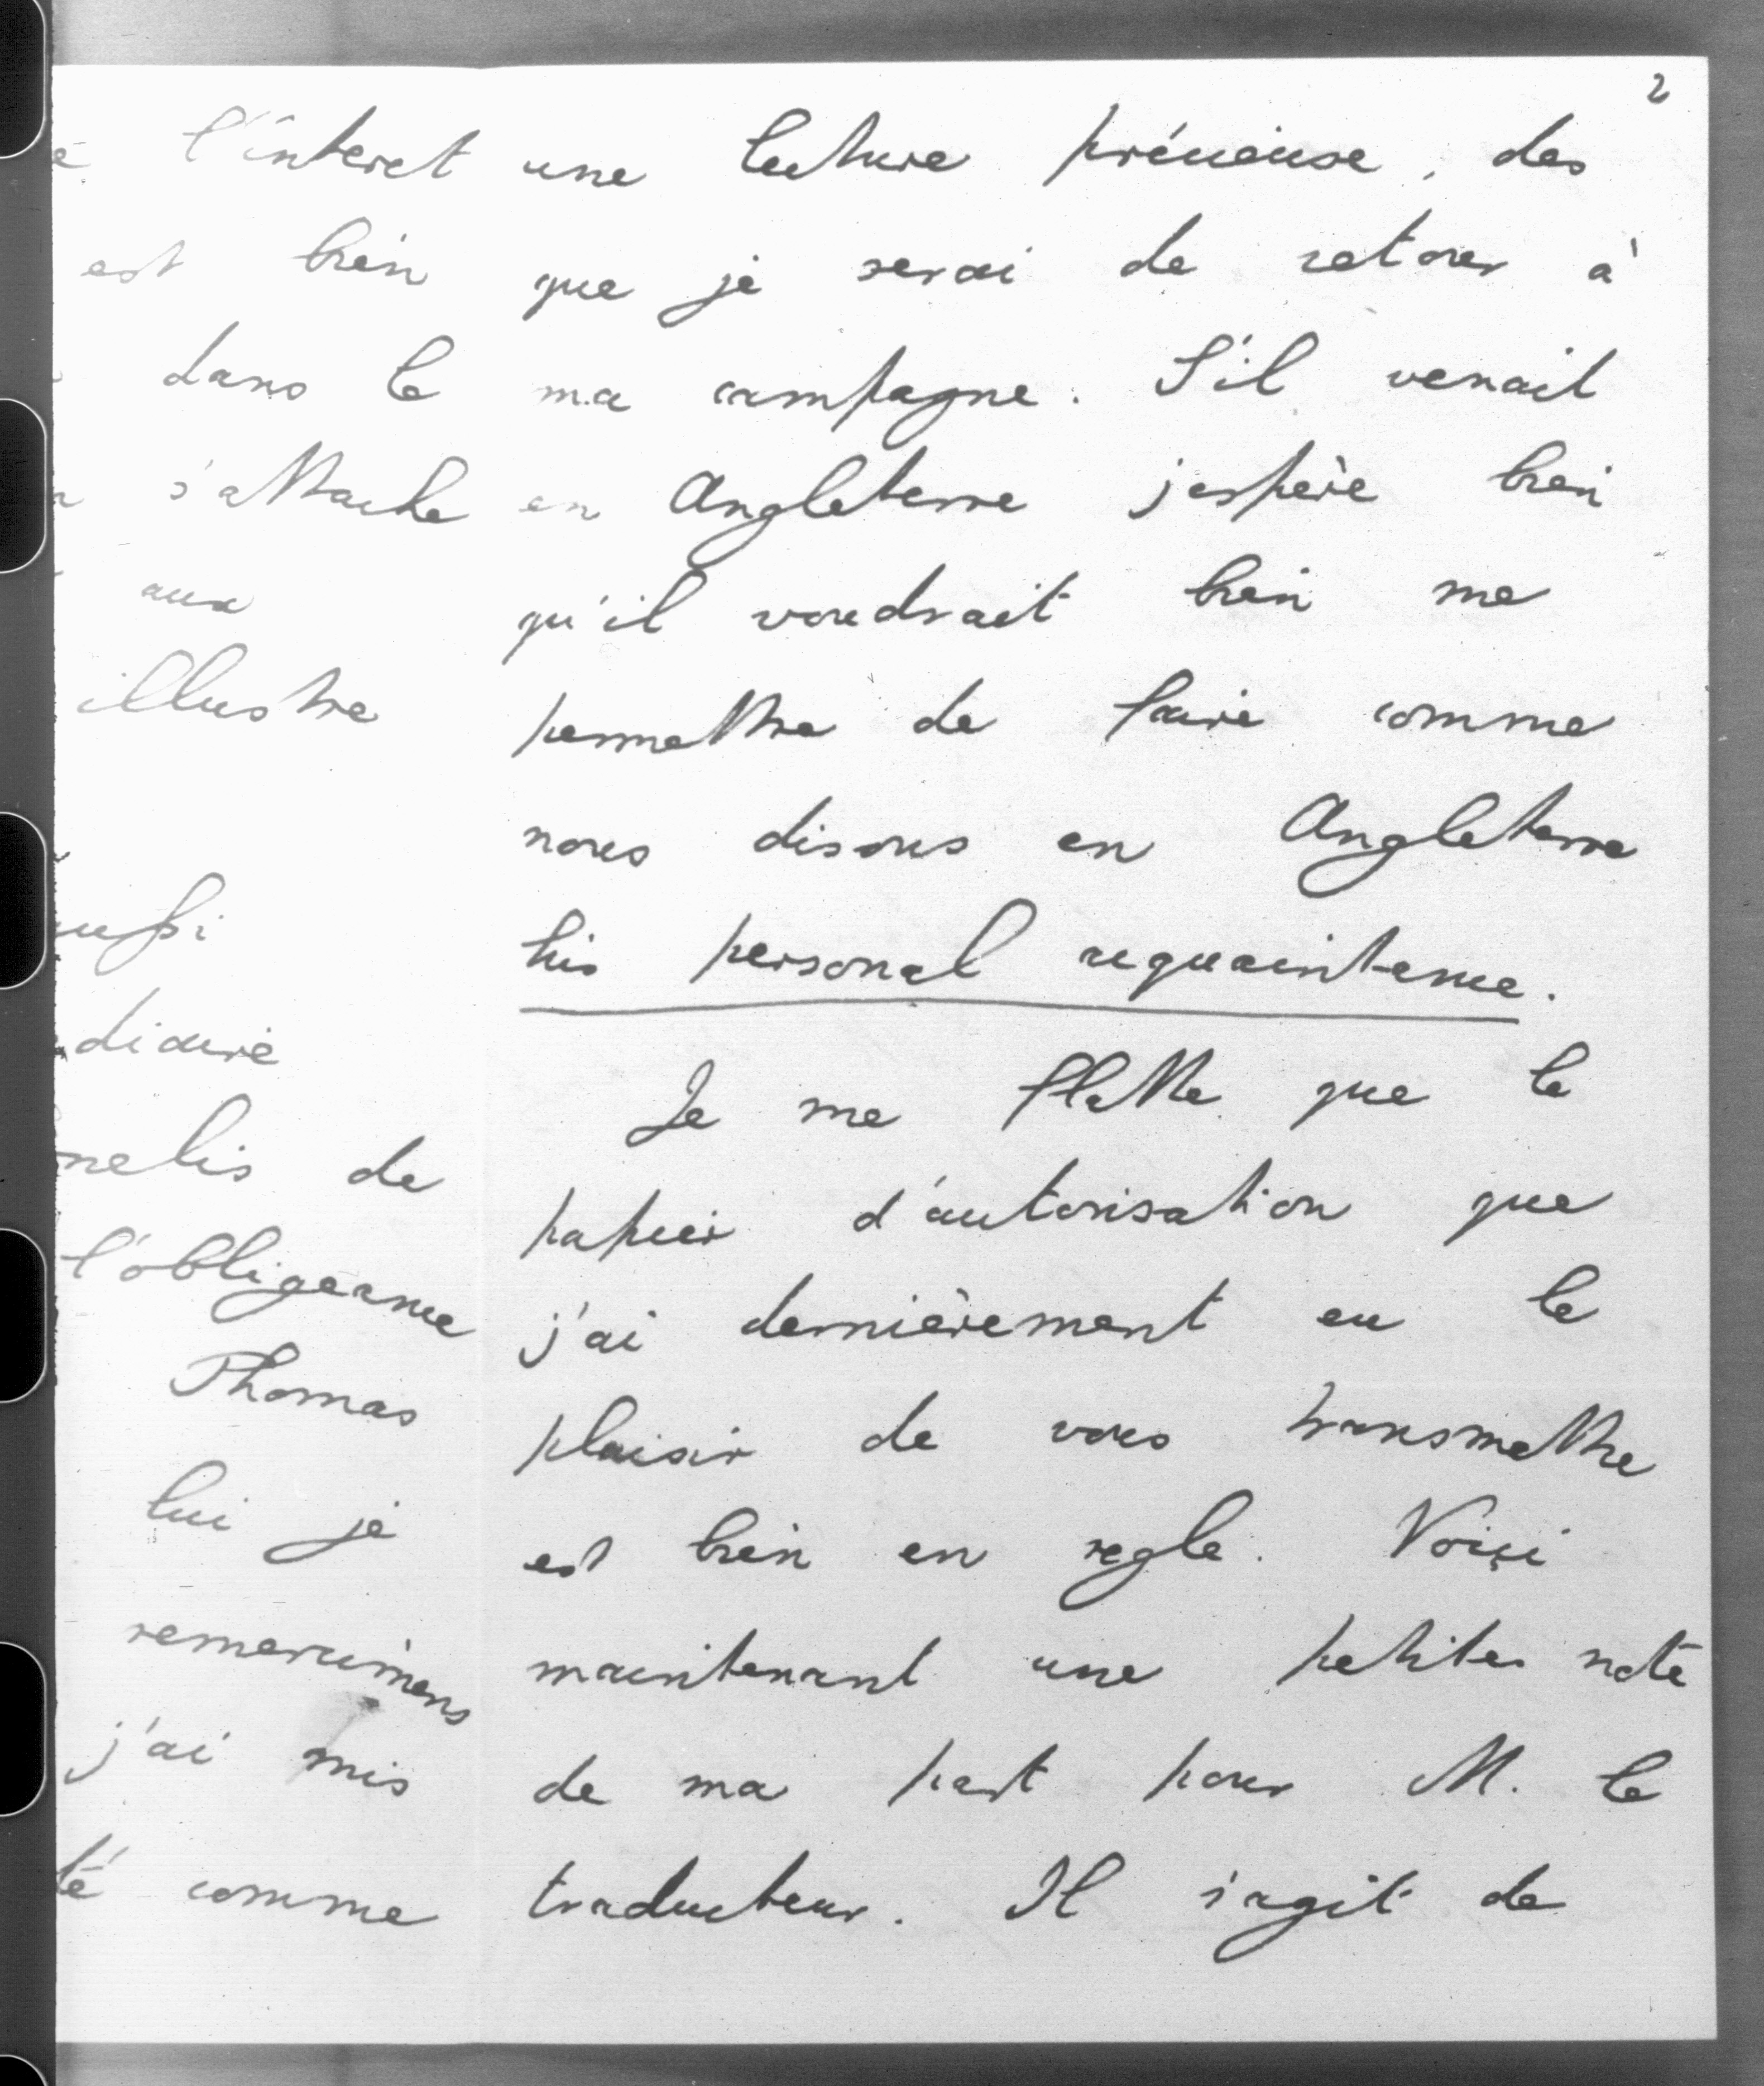 2
l'interet
est bien
dans le
s'attache
aux
illustre
diaire
de
l'obligeance
Thomas
lui je
remercimens
j'ai mis
té comme
une lecture précieuse, des
que je serai de retour à
ma campagne. S'il venait
en Angleterre j'espère bien
qu'il voudrait bien me
permettre de faire comme
nous disons en Angleterre
his personal acquaintance.
Je me flatte que le
papier d'autorisation que
j'ai dernièrement eu le
plaisir de vous transmettre
est bien en regle. Voici
maintenant une petite note
de ma part pour M. le
traducteur. Il s'agit de